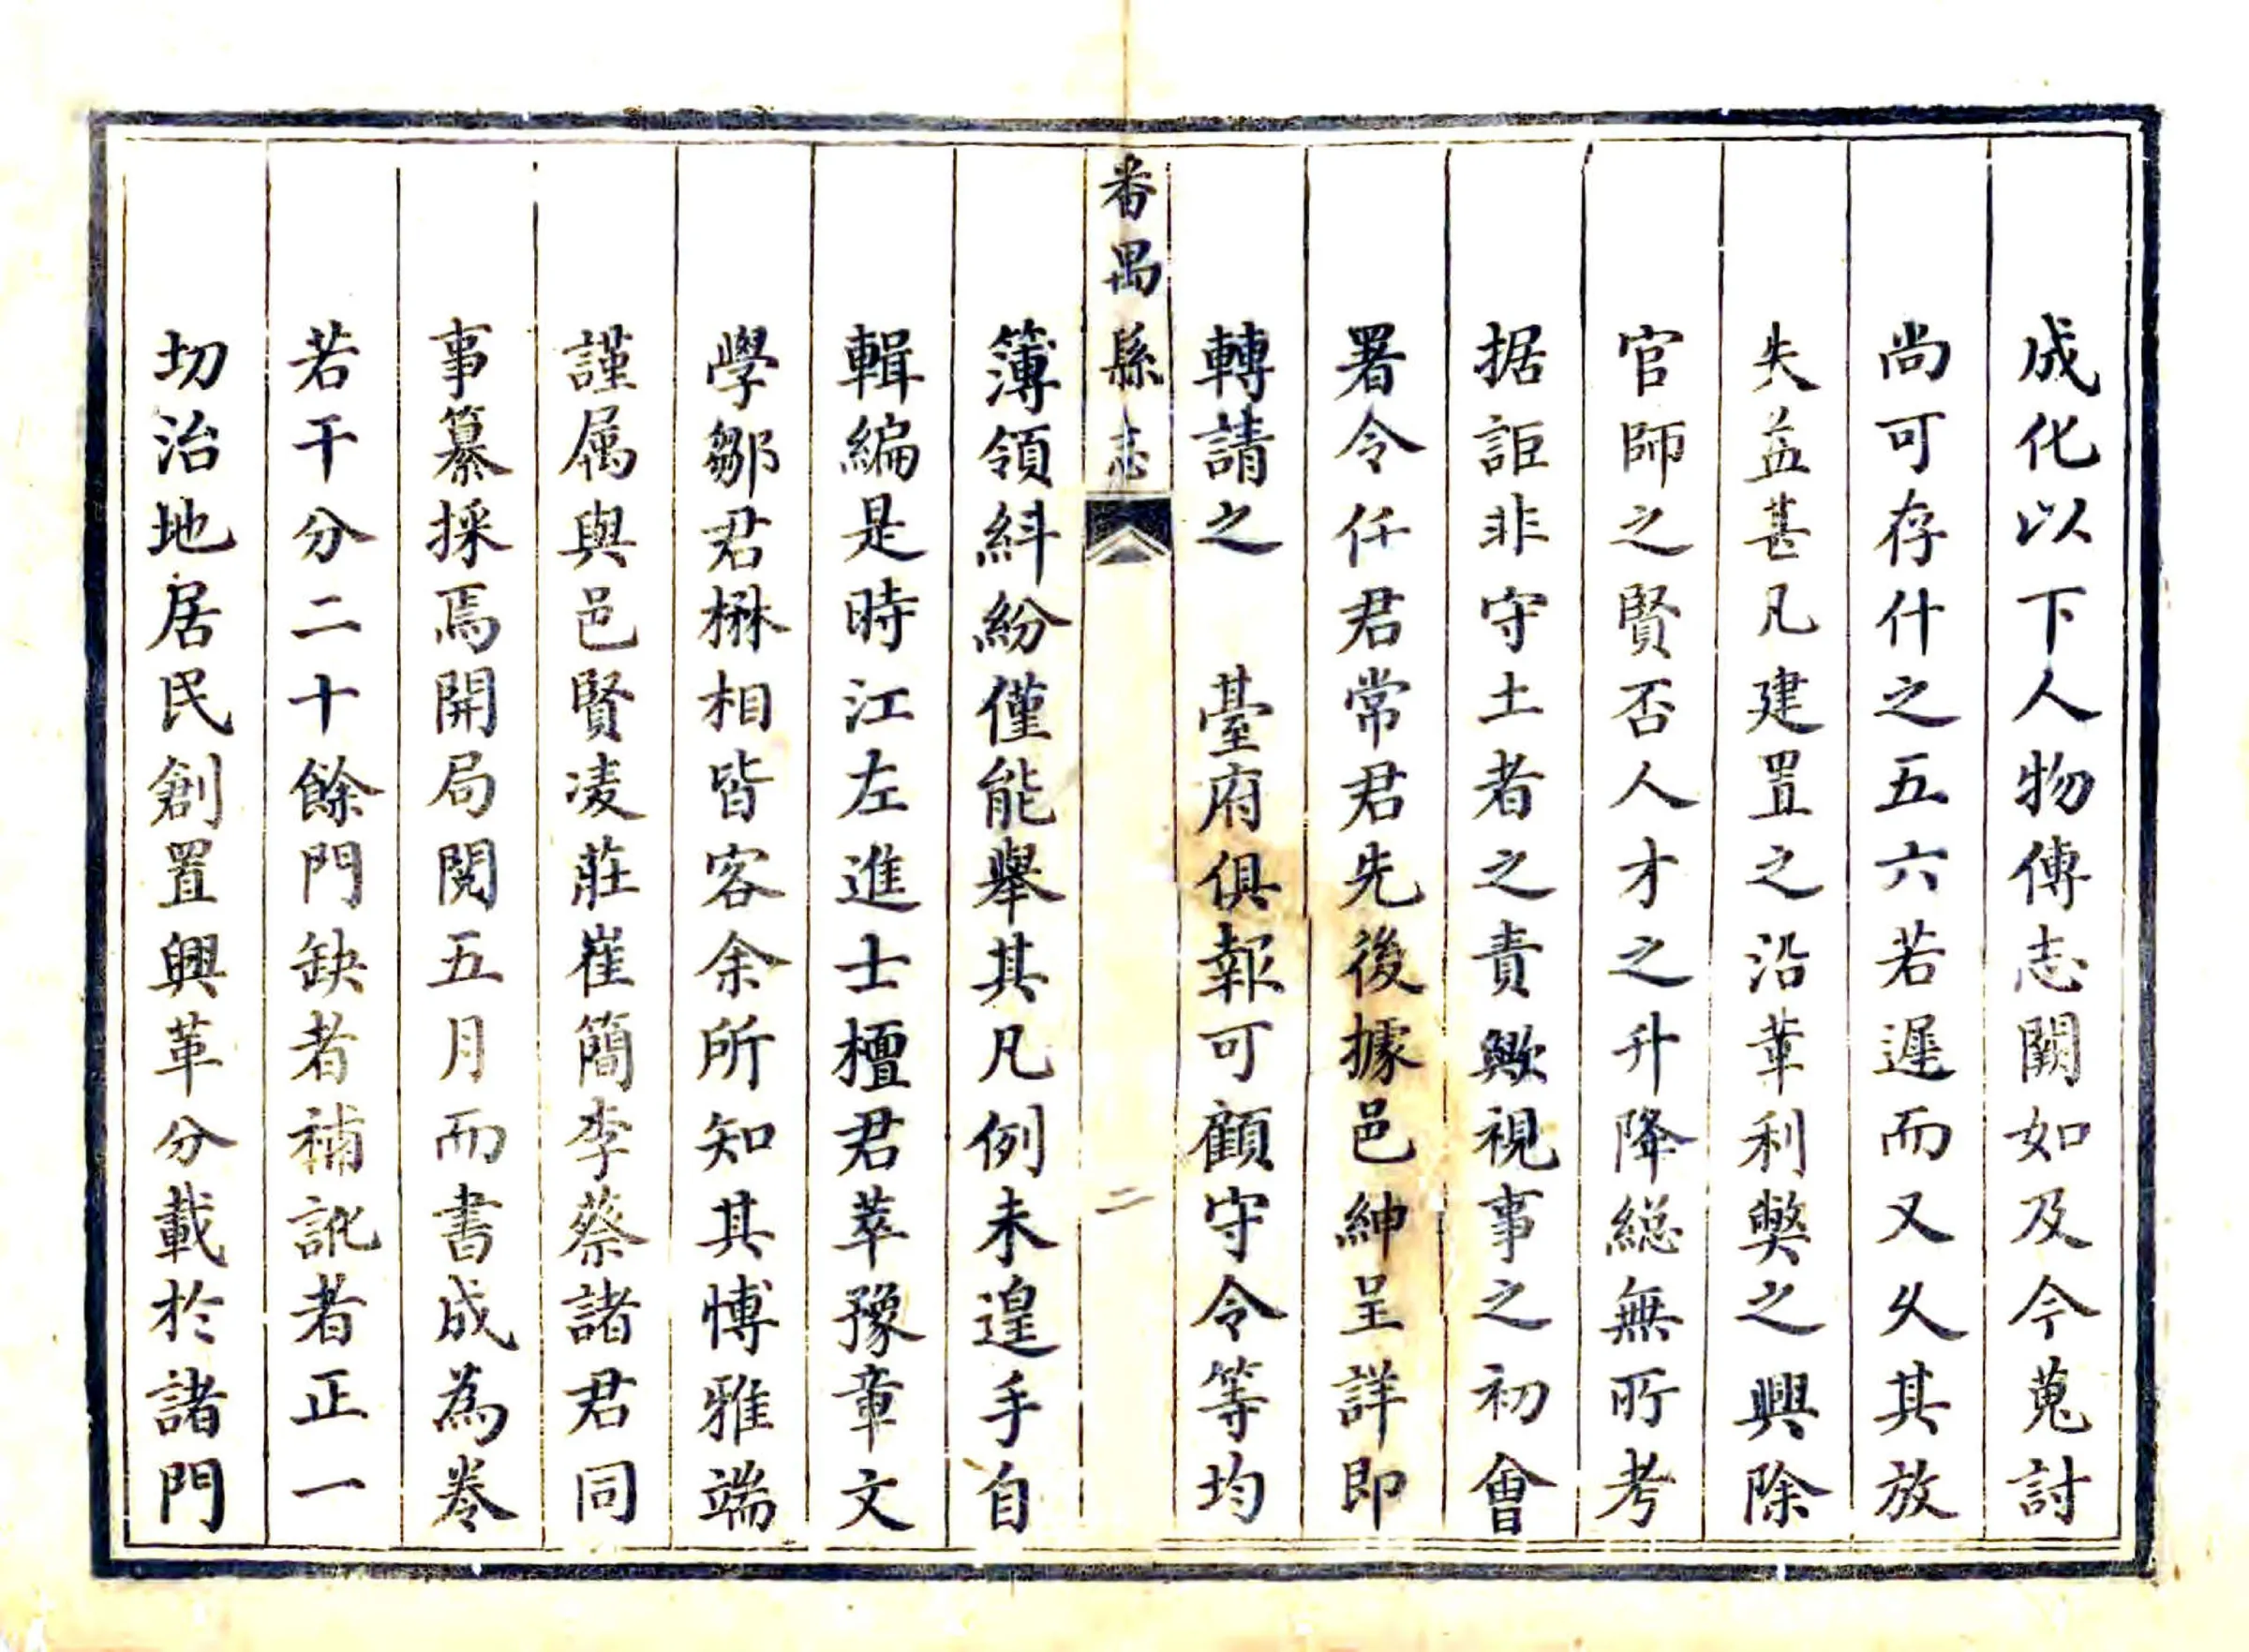 成化以下人物傳志闕如及今蒐討
尚可存什之五六若遲而又久其放
失益甚凡建置之沿革利獘之興除
官師之賢否人才之升降総無所考
据詎非守土者之責歟視事之初會
署令仟君常君先後據邑紳呈詳即
轉請之　臺府俱報可顧守令等均
番禺縣志　二
簿領紏紛僅能舉其凡例未遑手自
輯編是時江左進士檀君萃豫章文
學鄒君楙相皆客余所知其博雅端
謹属與邑賢凌莊崔簡李蔡諸君同
事纂採焉開局閱五月而書成為卷
若干分二十餘門缺者補訛者正一
切治地居民創置興革分載於諸門